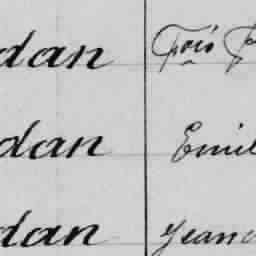 dan Frois F
dan Emil
dan Jeann